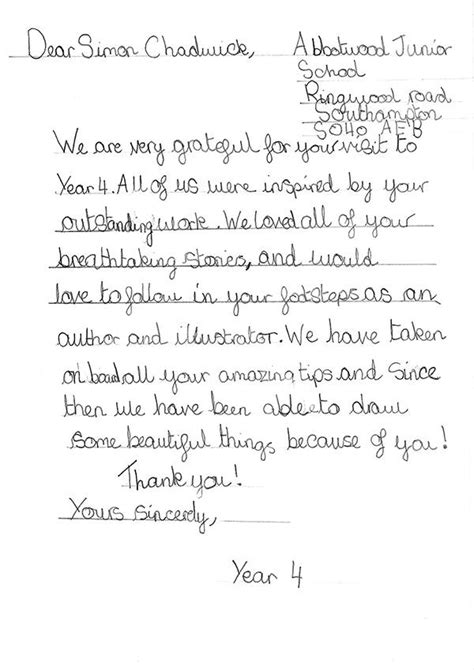 Dear Simon Chadwick,
Abbotwood Junior
School
Ringwood road
Southampton
SO40 AEB
We are very grateful for your visit to
Year 4. All of us were inspired by your
outstanding work. We loved all of your
breathtaking stories, and would
love to follow in your footsteps as an
author and illustrator. We have taken
on board all your amazing tips and since
then we have been able to draw
some beautiful things because of you!
Thank you!
Yours sincerely,
Year 4